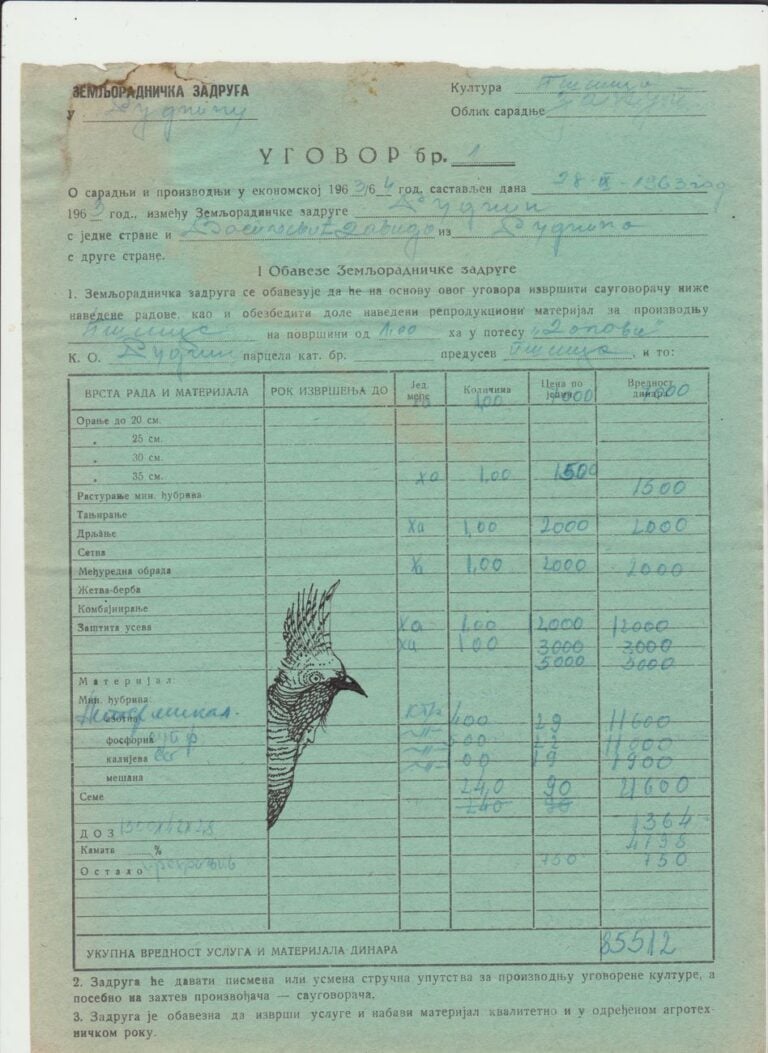 ЗЕМЉОРАДНИЧКА ЗАДРУГА
Култура Пшеница
у Рудницу
Облик сарадње
УГОВОР бр. 1
О сарадњи и производњи у економској 1963/64 год. састављен дана 28-IX-1963 год
1963 год., између Земљорадничке задруге Рудник
с једне стране и из
с друге стране.
I Обавезе Земљорадничке задруге
1. Земљорадничка задруга се обавезује да ће на основу овог уговора извршити сауговорачу ниже
наведене радове, као и обезбедити доле наведени репродукциони материјал за производњу
на површини од 1.00 ха у потесу
К. О. парцела кат. бр. предусев Пшеница, и то:
ВРСТА РАДА И МАТЕРИЈАЛА РОК ИЗВРШЕЊА ДО Јед. мере Количина Цена по једин. Вредност динара
ха 1,00 7000 7000
Орање до 20 см.
„ 25 см.
„ 30 см.
„ 35 см. ха 1,00 1500
Растурање мин. ђубрива 1500
Тањирање
Дрљање ха 1,00 2000 2000
Сетва
Међуредна обрада ха 1,00 2000 2000
Жетва-берба
Комбајнирање
Заштита усева ха 1.00 12000 12000
ха 1,00 3000 3000
5000 5000
Материјал
Мин. ђубрива
азотна 400 29 11600
фосфорна 500 22 11000
калијева 100 19 1900
мешана
Семе 240 90 21600
240 90
ДОЗ 1364
Камата % 4198
Остало 750 750
УКУПНА ВРЕДНОСТ УСЛУГА И МАТЕРИЈАЛА ДИНАРА 85512
2. Задруга ће давати писмена или усмена стручна упутства за производњу уговорене културе, а
посебно на захтев произвођача — сауговорача.
3. Задруга је обавезна да изврши услуге и набави материјал квалитетно и у одређеном агротех-
ничком року.